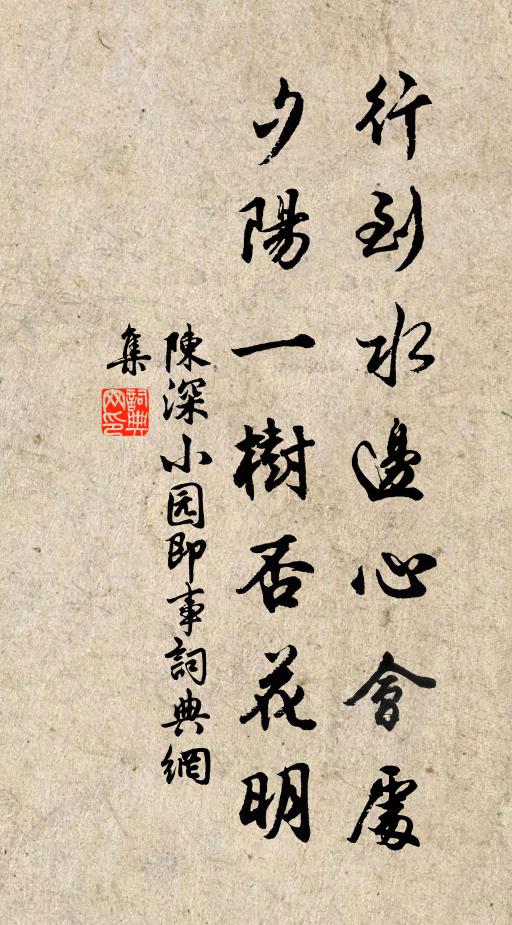 行到水邊心會處
夕陽一樹否花明
陳深小园即事詞典網
集
詞典网印